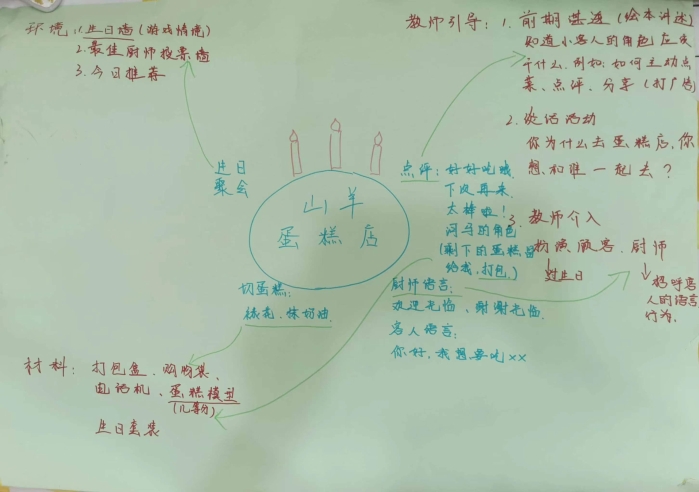 环境：1.生日墙（游戏情境）
2.最佳厨师投票墙
3.今日推荐
生日
聚会
山羊
蛋糕店
切蛋糕：
裱花、抹奶油
材料：打包盒、购物袋、
电话机、蛋糕模型
（几等分）
生日套装
点评：好好吃哦
下次再来
太棒啦！
河马的角色
（剩下的蛋糕留
给我，打包）
厨师语言：
欢迎光临、谢谢光临
客人语言：
你好，我想要吃××
教师引导：1.前期铺垫（绘本讲述）
知道小客人的角色在
干什么，例如：如何主动点
菜、点评、分享（打广告
2.谈话活动
你为什么去蛋糕店，你
想和谁一起去？
3.教师介入
扮演顾客、厨师
过生日
招呼客
人的语言
行为.